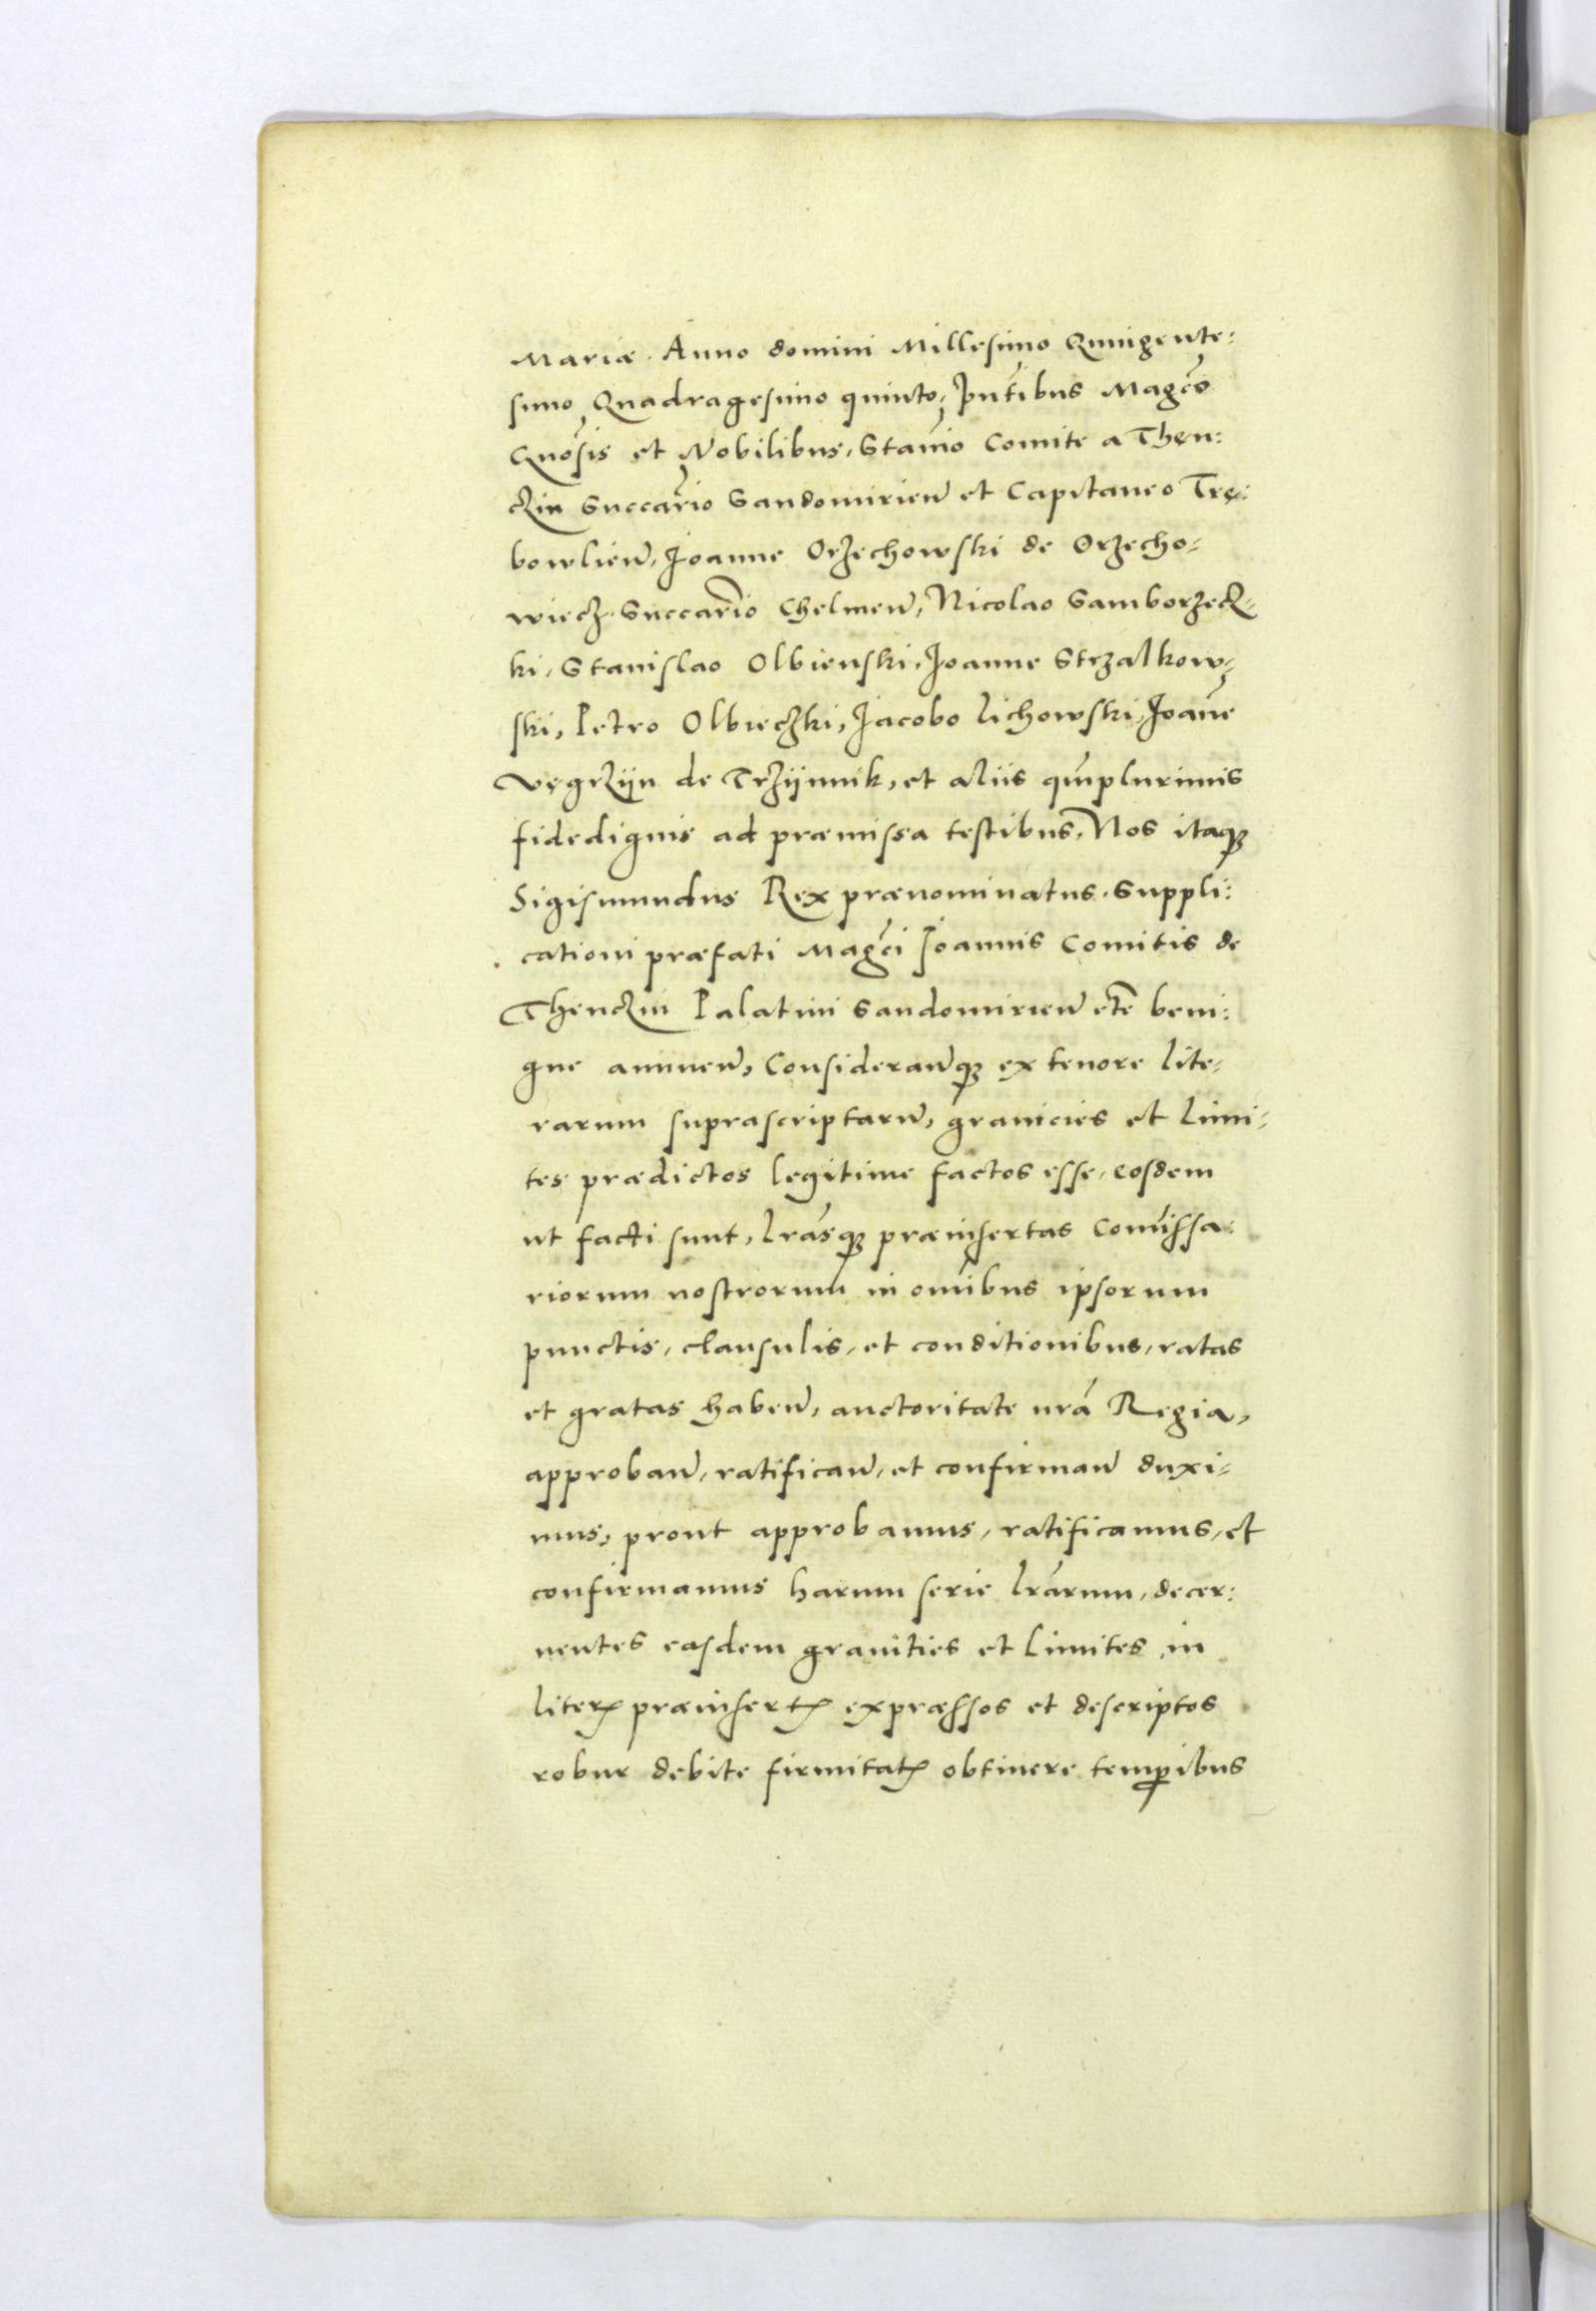 Mariæ. Anno domini Millesimo Quingente:
simo Quadragesimo quinto, Pn̄tibus Magc̄o
Gnōsis et Nobilibus, Stanīo Comite a Then:
czin Succarīo Sandomirien̄ et Capitaneo Tre:
bowlien̄, Joanne Orzechowski de Orzecho-
wiecz Succarīo Chelmen̄, Nicolao Samborzecz-
ki, Stanislao Olbienski, Joanne Strzalkow-
ski, Petro Olbieczki, Jacobo Lichowski, Joan̄e
Vęgrzÿn de Trzÿnnik, et aliis qm̄plurimis
fidedignis ad præmissa testibus, Nos itaqꝫ
Sigismundus Rex prænominatus, Suppli:
cationi præfati Magc̄i Joannis Comitis de
Thenczin Palatini Sandomirien̄ etc̄ beni:
gne annuen̄, Consideran̄qꝫ ex tenore lite-
rarum suprascriptarū, granicies et limi-
tes prædictos legitime factos esse, eosdem
ut facti sunt, lrāsqꝫ præinsertas Com̄issa:
riorum nostrorum in om̄ibus ipsorum
punctis, clausulis, et conditionibus, ratas
et gratas haben̄, auctoritate nrā Regia,
approban̄, ratifican̄, et confirman̄ duxi-
mus, prout approbamus, ratificamus, et
confirmamus harum serie lrārum, decer:
nentes easdem granities et limites in
literꝭ præinsertꝭ expræssos et descriptos
robur debite firmitatꝭ obtinere temꝑibus